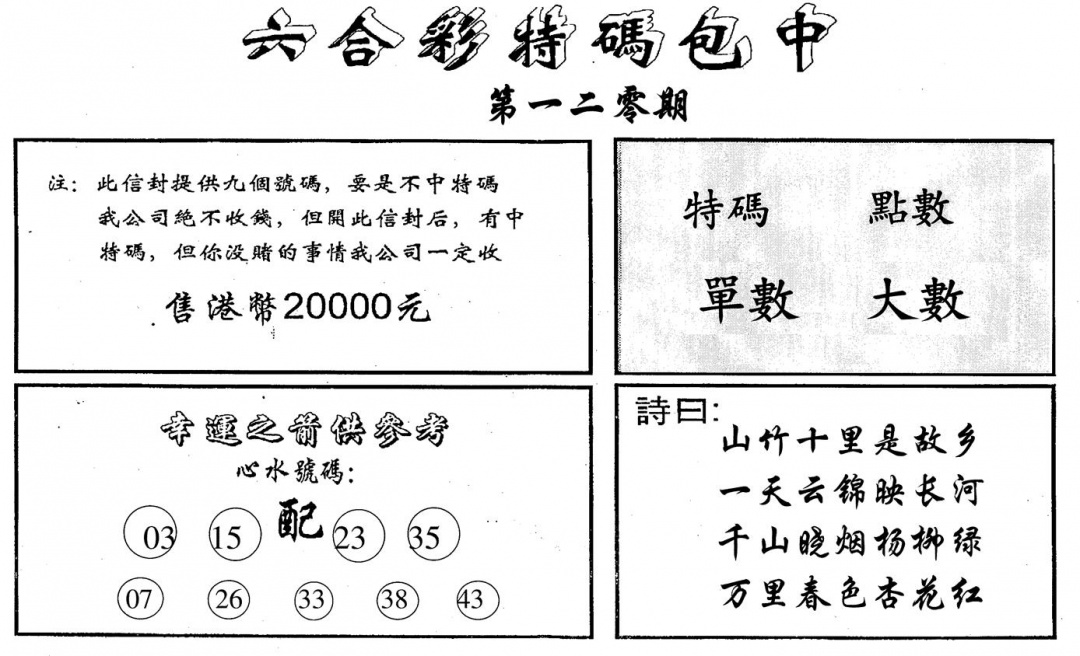 六合彩特碼包中
第一二零期
注：此信封提供九個號碼，要是不中特碼
我公司絶不收錢，但開此信封后，有中
特碼，但你没賭的事情我公司一定收
售港幣20000元
特碼 點數
單數 大數
幸運之箭供參考
心水號碼：
03 15 配 23 35
07 26 33 38 43
詩曰：
山竹十里是故乡
一天云锦映长河
千山晓烟杨柳绿
万里春色杏花红